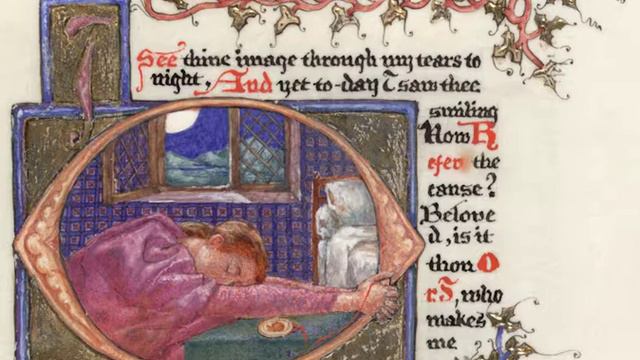 I See thine image through my tears to
night, And yet to-day I saw thee
smiling
How R
efer the
cause?
Belove
d, is it
thou O
r I, who
makes
me